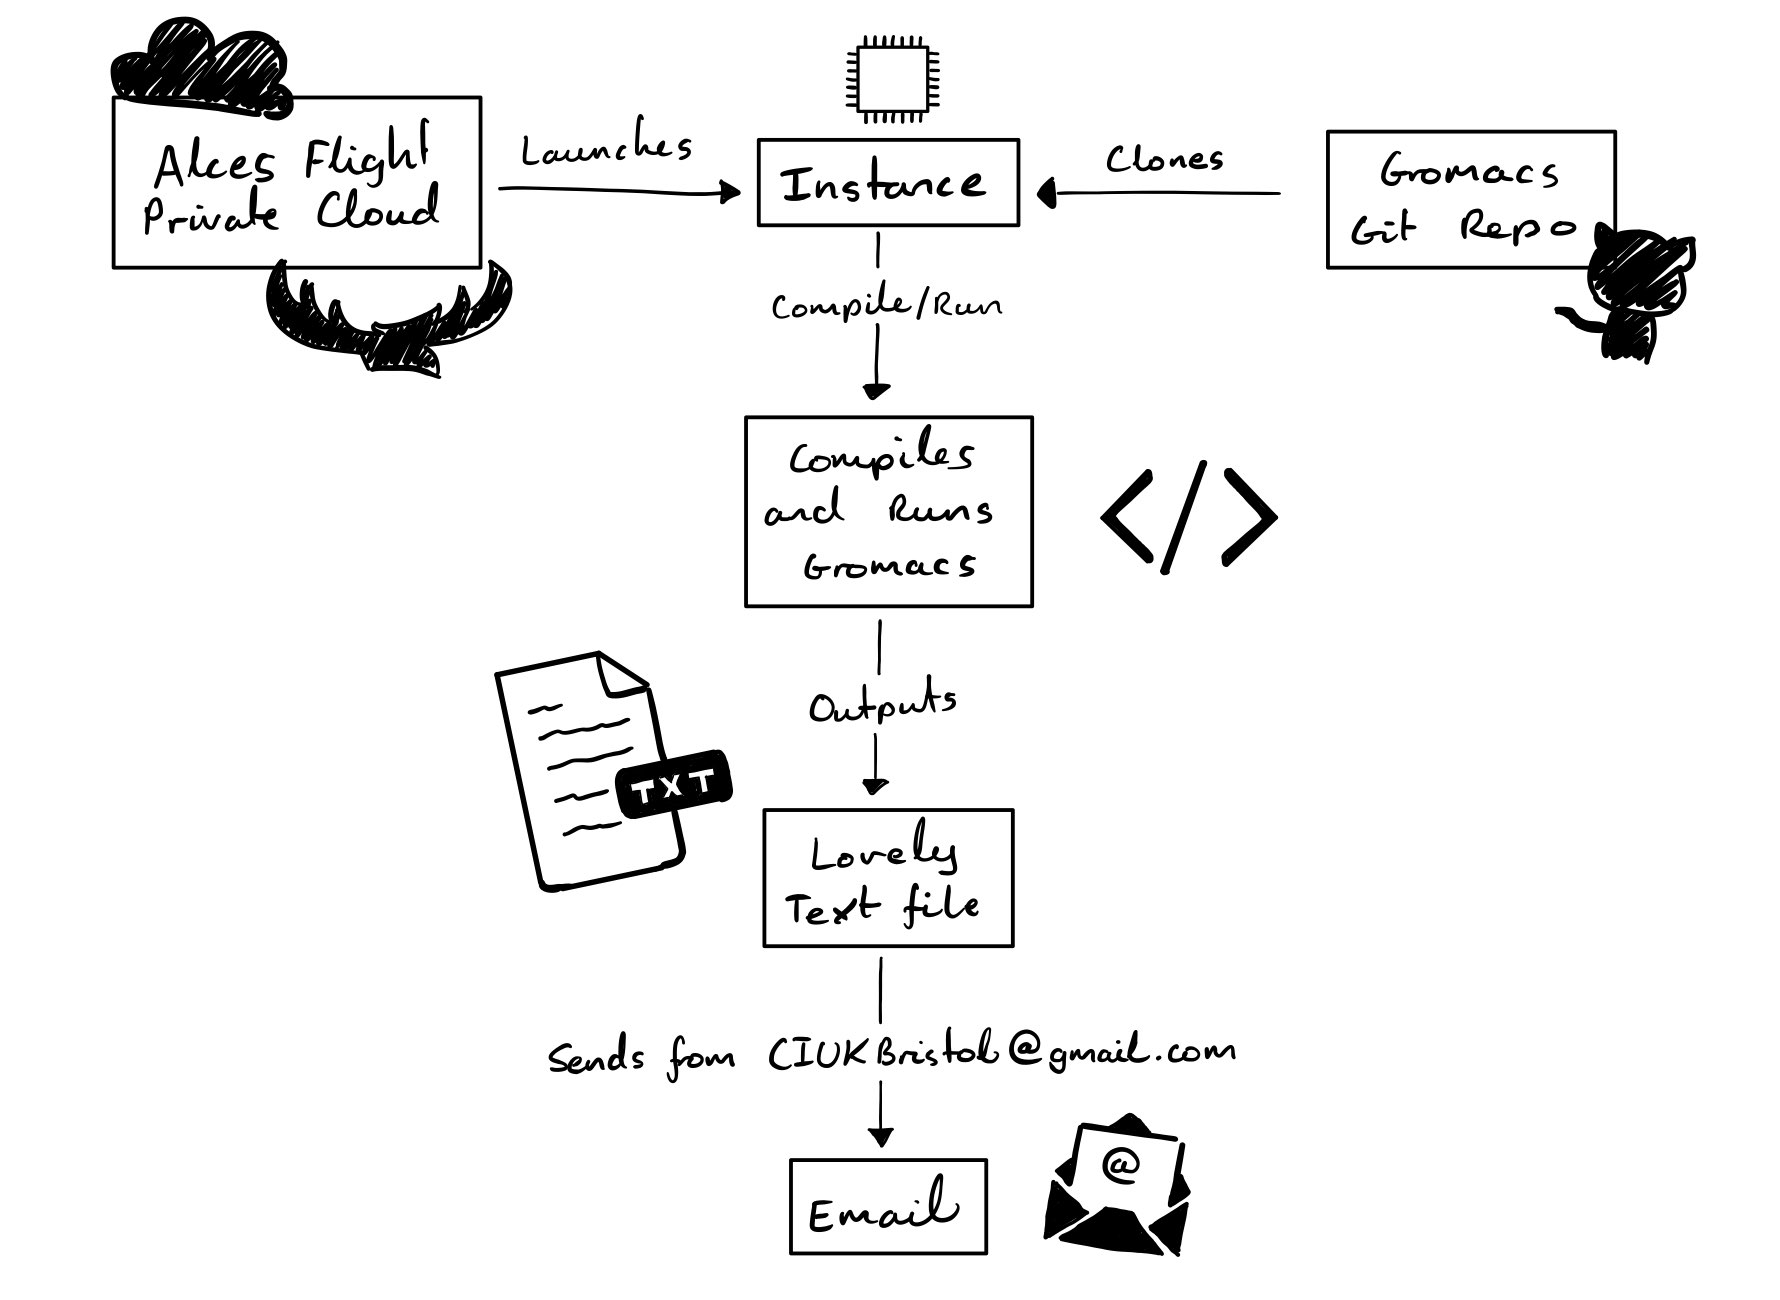 Alces Flight
Private Cloud
Launches
Instance
Clones
Gromacs
Git Repo
Compile/Run
Compiles
and Runs
Gromacs
</>
Outputs
TXT
Lovely
Text file
Sends from CIUKBristol@gmail.com
@
Email